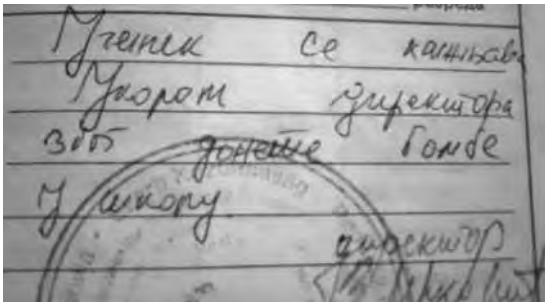 Ученик се кажњава
Укором директора
Због донете бомбе
У школу
директор